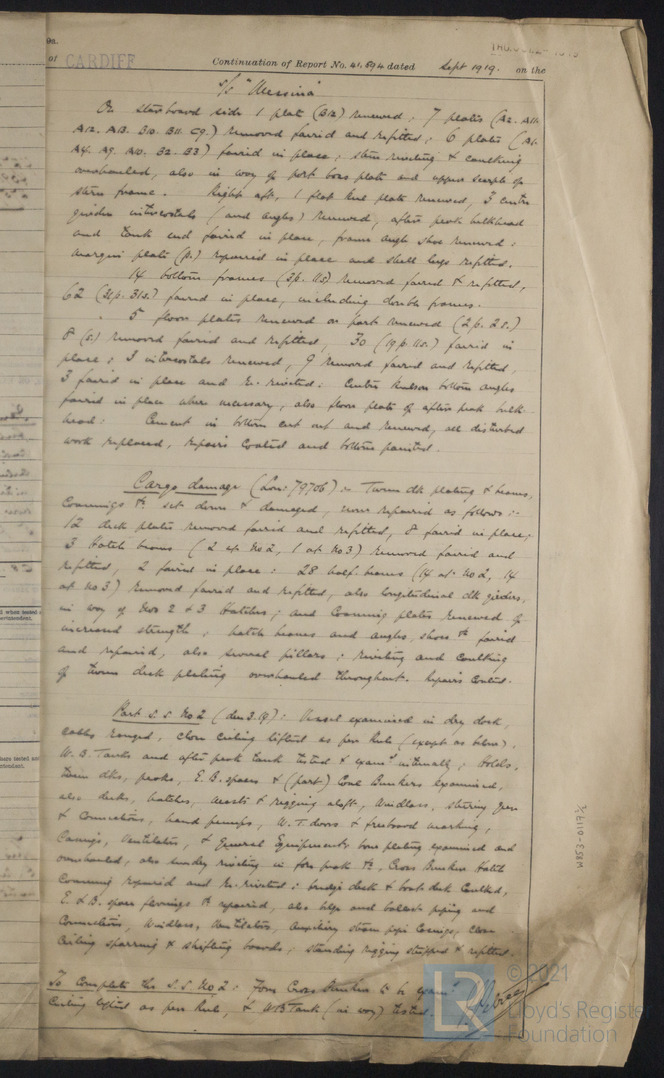 of CARDIFF
Continuation of Report No. 41,694 dated Sept 1919. on the
S/S "Messina"
On starboard side 1 plate (B12) renewed; 7 plates (A2. A11.
A12. A13. B10. B11. C9.) removed faired and refitted; 6 plates (A1.
A4. A9. A10. B2. B3) faired in place; stem riveting & caulking
overhauled, also in way of port boss plate and upper scarph of
stern frame. Right aft, 1 flat keel plate renewed, 3 centre
girder intercostals (and angles) renewed, after peak bulkhead
and tank end faired in place, frame angle shoe renewed:
margin plate (p.) repaired in place and shell lugs refitted.
14 bottom frames (3p. 11s) removed faired & refitted,
62 (31p. 31s.) faired in place, including double frames.
5 floor plates renewed or part renewed (2p. 2s.)
8 (s) removed faired and refitted, 30 (19p. 11s.) faired in
place; 3 intercostals renewed, 9 removed faired and refitted,
3 faired in place and re-riveted: Centre keelson bottom angles
faired in place where necessary, also floor plate of after peak bulk
head: Cement in bottom cut out and renewed, all disturbed
work replaced, repairs coated and bottom painted.
Cargo damage (Lon: 79706):- Tween dk plating & beams,
coamings &c. set down & damaged, now repaired as follows:-
12 deck plates removed faired and refitted, 8 faired in place;
3 Hatch beams (2 at No 2, 1 at No 3) removed faired and
refitted, 2 faired in place: 28 half beams (14 at No 2, 14
at No 3) removed faired and refitted, also longitudinal dk girders,
in way of Nos 2 & 3 Hatches; and coaming plates renewed of
increased strength; hatch beams and angles, shoes &c faired
and repaired, also several pillars; riveting and caulking
of tween deck plating overhauled throughout. Repairs coated.
Part S.S No 2 (due 3.19): Vessel examined in dry dock,
cables ranged, close ceiling lifted as per Rule (except as below).
W.B. Tanks and after peak tank tested & examd internally; holds,
tween dks, peaks, E.B. spaces & (part) Coal Bunkers examined,
also decks, hatches, masts & rigging aloft, windlass, steering gear
& connections, hand pumps, W.T. doors & freeboard marking,
Casings, Ventilators, & General Equipment: bow plating examined and
overhauled, also sundry riveting in fore peak &c, Cross Bunker Hatch
Coaming repaired and re-riveted: bridge deck & boat deck caulked,
E. & B. space floorings &c repaired, also bilge and ballast piping and
connections, windlass, ventilators, auxiliary steam pipe casings, close
ceiling sparring & shifting boards; standing rigging stripped & refitted.
To complete this S.S No 2: Fore Cross Bunker to be examd
Ceiling lifted as per Rule, & W.B Tank (in way) tested.
W853-0119 ½
© 2021
Lloyd's Register
Foundation
LR